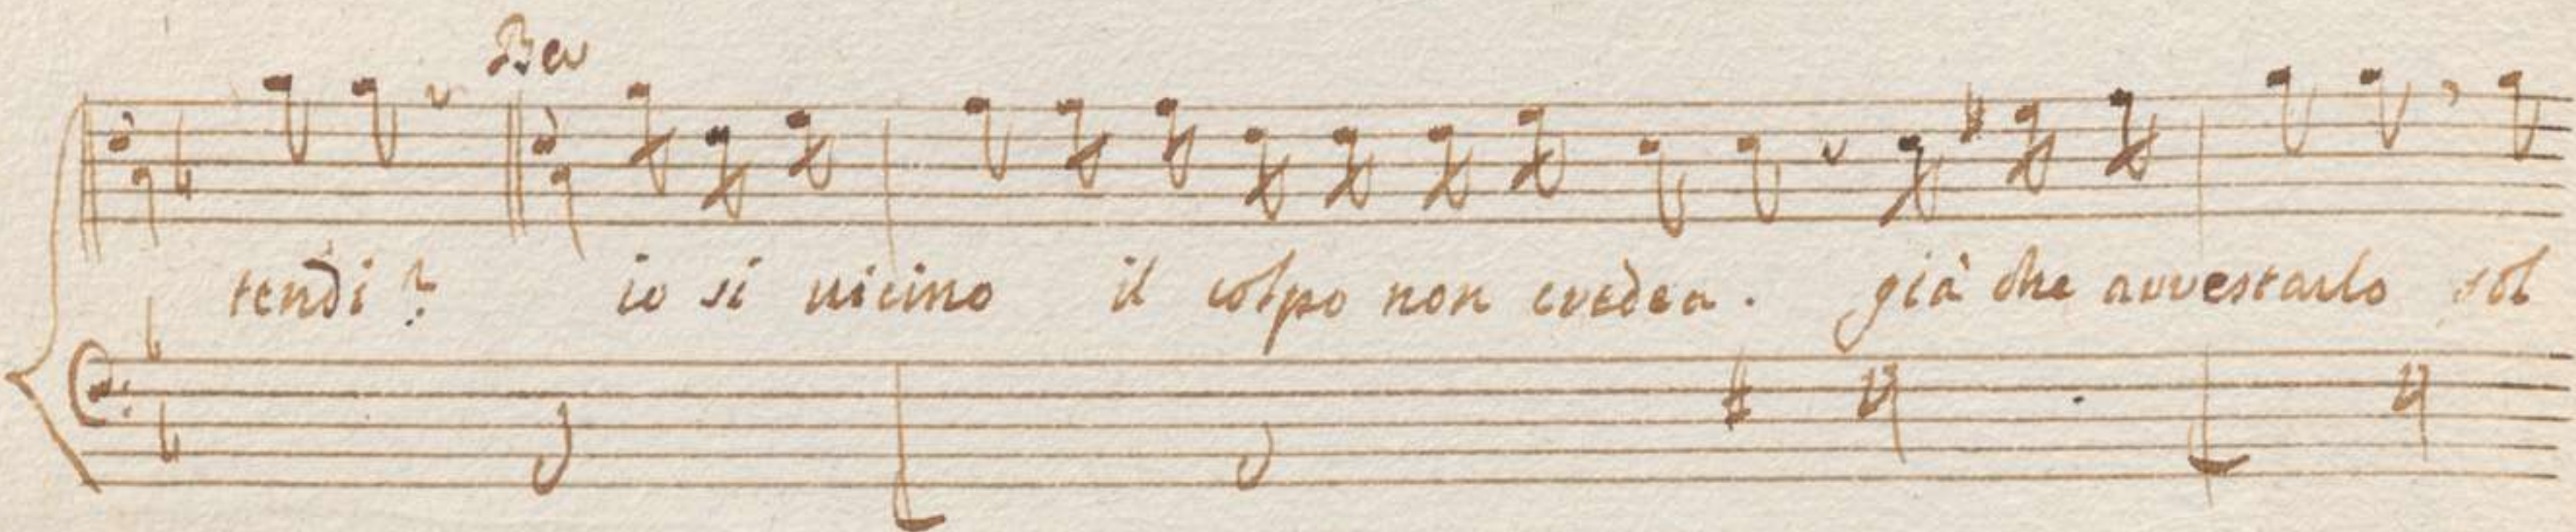 Ber
tendi? io si uicino il colpo non credea. già che arrestarlo sol